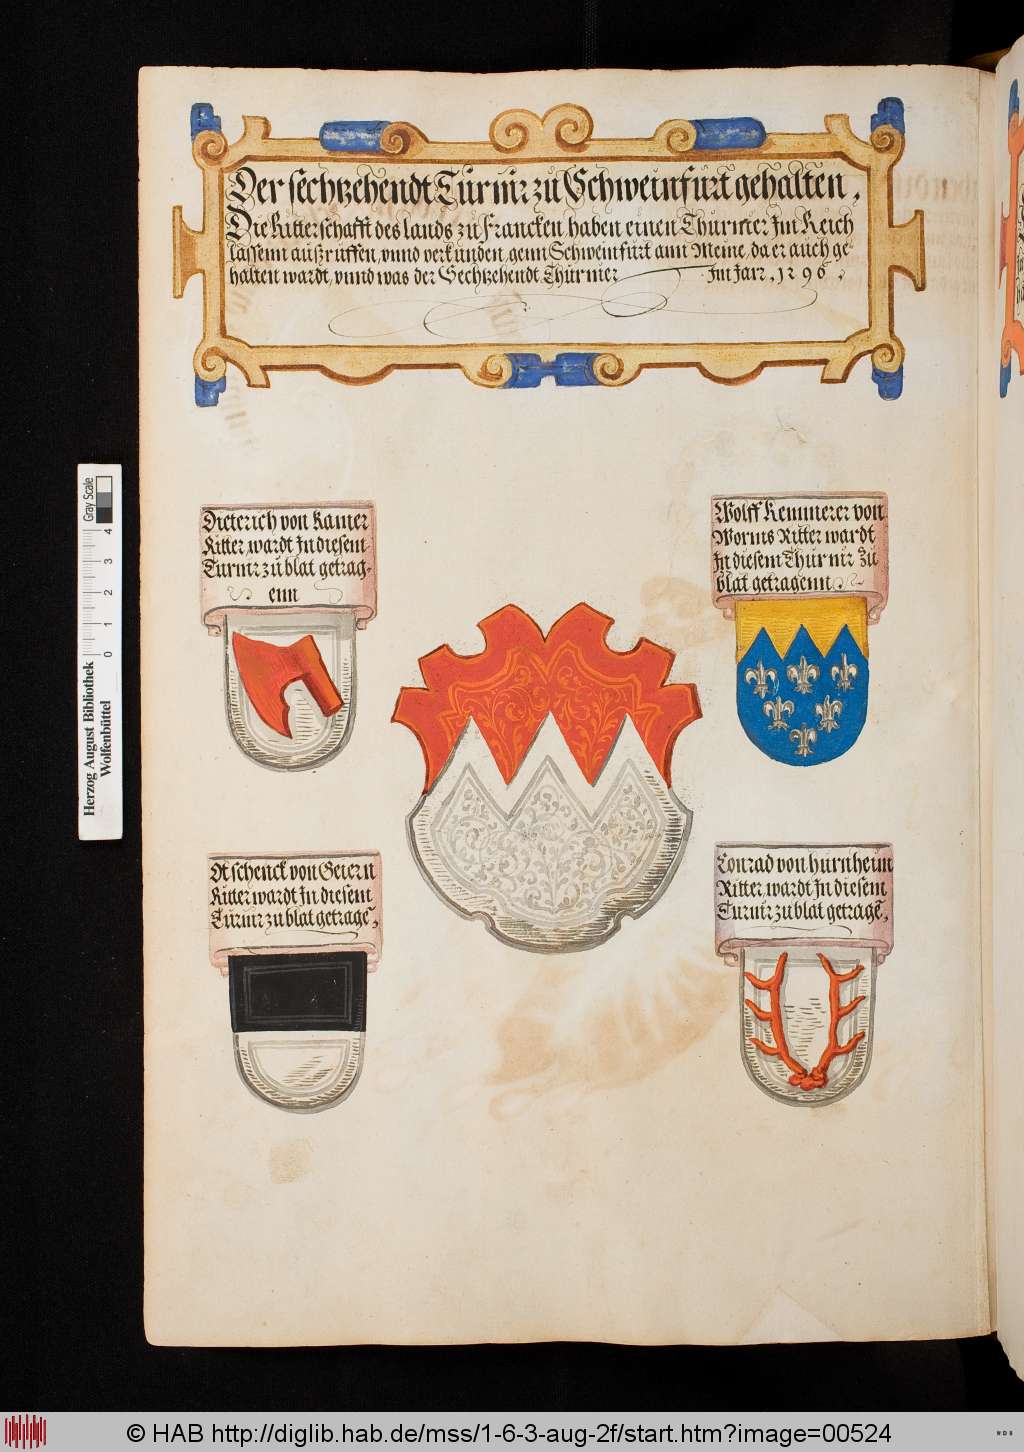 Der sechtzehendt Turnir zu Schweinfurt gehalten,
Die Ritterschafft des lands zu Francken haben einen Thurnier Im Reich
lassenn außruffen, vnnd verkunden, genn Schweinfurt ann Meine, da er auch ge
halten wardt, vnnd was der Sechtzehendt Thurnier Im Jarr, 1296,
Dieterich von Kamer
Ritter, wardt In diesem
Turnir zu blat getrag-
enn
Wolff Kemmerer von
Worms Ritter wardt
In diesem Thurnir zu
blat getragenn
schenck von Geiern
Ritter wardt In diesem
Turnir zu blat getragē,
Conrad von hurnheim
Ritter, wardt In diesem
Turnir zu blat getragē,
Herzog August Bibliothek
Wolfenbüttel
0 1 2 3 4
Gray Scale
© HAB http://diglib.hab.de/mss/1-6-3-aug-2f/start.htm?image=00524